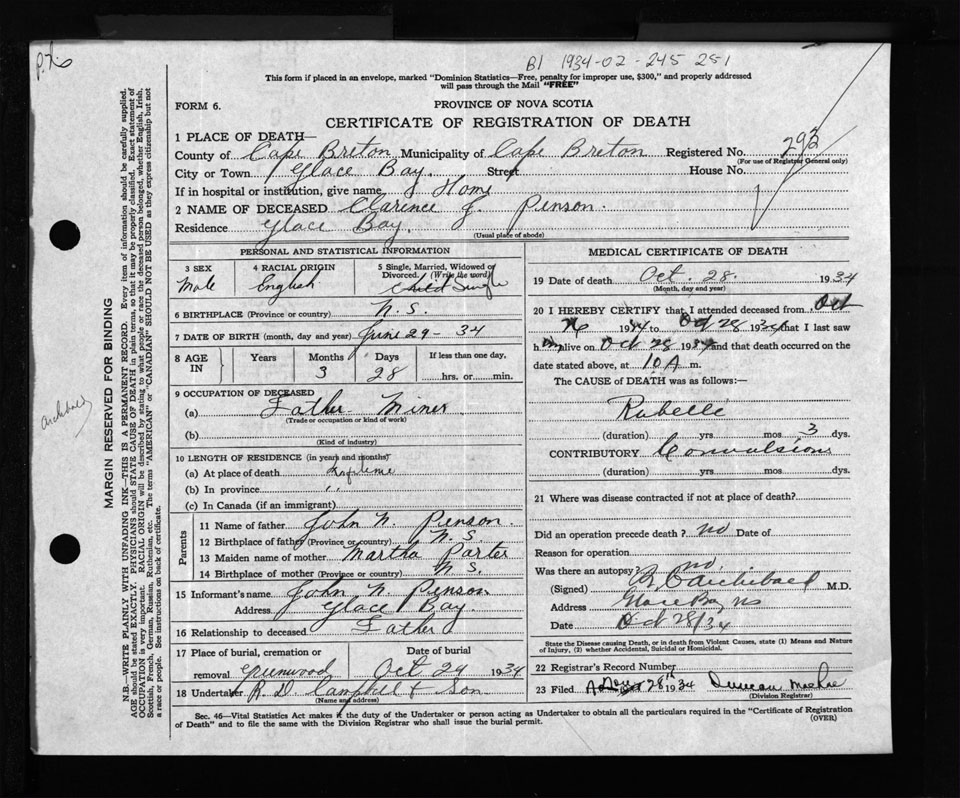 P.N.6
B1 1934-02-245 251
This form if placed in an envelope, marked "Dominion Statistics—Free, penalty for improper use, $300," and properly addressed
will pass through the Mail "FREE"
FORM 6.
PROVINCE OF NOVA SCOTIA
CERTIFICATE OF REGISTRATION OF DEATH
1 PLACE OF DEATH—
County of Cape Breton Municipality of Cape Breton Registered No. 293
(For use of Registrar General only)
City or Town Glace Bay. Street House No.
If in hospital or institution, give name Home
2 NAME OF DECEASED Clarence J. Penson.
Residence Glace Bay.
(Usual place of abode)
PERSONAL AND STATISTICAL INFORMATION
3 SEX Male
4 RACIAL ORIGIN English
5 Single, Married, Widowed or Divorced. (Write the word) Child Single
6 BIRTHPLACE (Province or country) N.S.
7 DATE OF BIRTH (month, day and year) June 29 - 34
8 AGE IN Years Months 3 Days 28 If less than one day, hrs. or min.
9 OCCUPATION OF DECEASED
(a) Father Miner
(Trade or occupation or kind of work)
(b)
(Kind of industry)
10 LENGTH OF RESIDENCE (in years and months)
(a) At place of death Lifetime
(b) In province "
(c) In Canada (if an immigrant)
Parents
11 Name of father John N. Penson.
12 Birthplace of father (Province or country) N.S.
13 Maiden name of mother Martha Porter
14 Birthplace of mother (Province or country) N.S.
15 Informant's name John N Penson
Address Glace Bay
16 Relationship to deceased Father
17 Place of burial, cremation or removal Greenwood
Date of burial Oct 29 1934
18 Undertaker R. D. Campbell & Son
(Name and address)
MEDICAL CERTIFICATE OF DEATH
19 Date of death Oct. 28. 1934
(Month, day and year)
20 I HEREBY CERTIFY that I attended deceased from Oct
26 1934 to Oct 28 1934 that I last saw
him alive on Oct 28 1934 and that death occurred on the
date stated above, at 10 A m.
The CAUSE of DEATH was as follows:—
Rubelle
(duration) yrs mos 3 dys.
CONTRIBUTORY Convulsions
(duration) yrs mos dys.
21 Where was disease contracted if not at place of death?
Did an operation precede death? no Date of
Reason for operation
Was there an autopsy? no.
(Signed) Archibald M.D.
Address Glace Bay NS
Date Oct 28/34
State the Disease causing Death, or in death from Violent Causes, state (1) Means and Nature
of Injury, (2) whether Accidental, Suicidal or Homicidal.
22 Registrar's Record Number
23 Filed 28th 1934 Duncan
(Division Registrar)
Sec. 46—Vital Statistics Act makes it the duty of the Undertaker or person acting as Undertaker to obtain all the particulars required in the "Certificate of Registration
of Death" and to file the same with the Division Registrar who shall issue the burial permit.
(OVER)
Archibald
MARGIN RESERVED FOR BINDING
N.B.—WRITE PLAINLY WITH UNFADING INK—THIS IS A PERMANENT RECORD. Every item of information should be carefully supplied.
AGE should be stated EXACTLY. PHYSICIANS should STATE CAUSE OF DEATH in plain terms, so that it may be properly classified. Exact statement of
OCCUPATION is very important. RACIAL ORIGIN will be described by stating to what people or race the deceased person belonged, whether English, Irish,
Scottish, French, German, Russian, Ruthenian, etc. The terms "AMERICAN" or "CANADIAN" SHOULD NOT BE USED as they express citizenship but not
a race or people. See instructions on back of certificate.